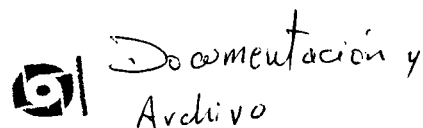 Documentación y
Archivo